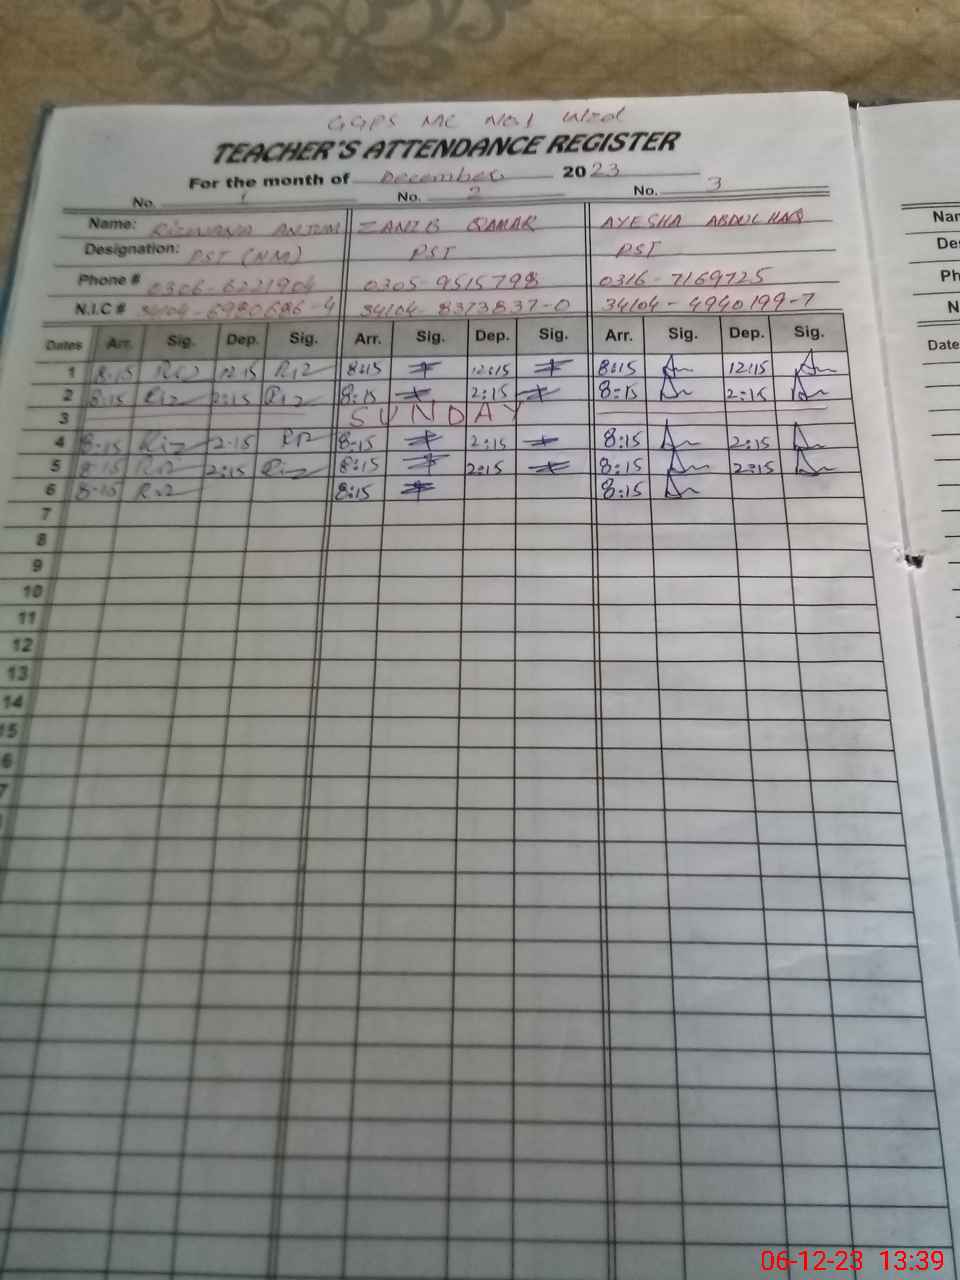 GGPS MC No.1 Wzd
TEACHER'S ATTENDANCE REGISTER
For the month of December 2023
No. 1 No. 2 No. 3
Name: RIZWANA ANJUM ZANIB QAMAR AYESHA ABDUL HAQ
Designation: PST (NM) PST PST
Phone # 0306-6221904 0305-9515798 0316-7169725
N.I.C # 34104-6980686-4 34104-8373837-0 34104-4940199-7
Dates Arr. Sig. Dep. Sig. Arr. Sig. Dep. Sig. Arr. Sig. Dep. Sig.
1 8-15 Riz 12:15 Riz 8:15 12:15 8:15 12:15
2 8:15 Riz 2:15 Riz 8:15 2:15 8:15 2:15
3 SUNDAY
4 8-15 Riz 2-15 Riz 8:15 2:15 8:15 2:15
5 8-15 Riz 2:15 Riz 8:15 2:15 8:15 2:15
6 8-15 Riz 8:15 8:15
7
8
9
10
11
12
13
14
15
6
7
Nam
Des
Ph
N
Date
06-12-23 13:39